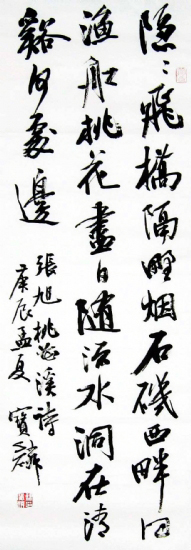 隐〻飛橋隔野烟石磯西畔问
漁船桃花盡日随流水洞在清
谿何處邊
張旭桃花溪詩
庚辰孟夏 寶麟